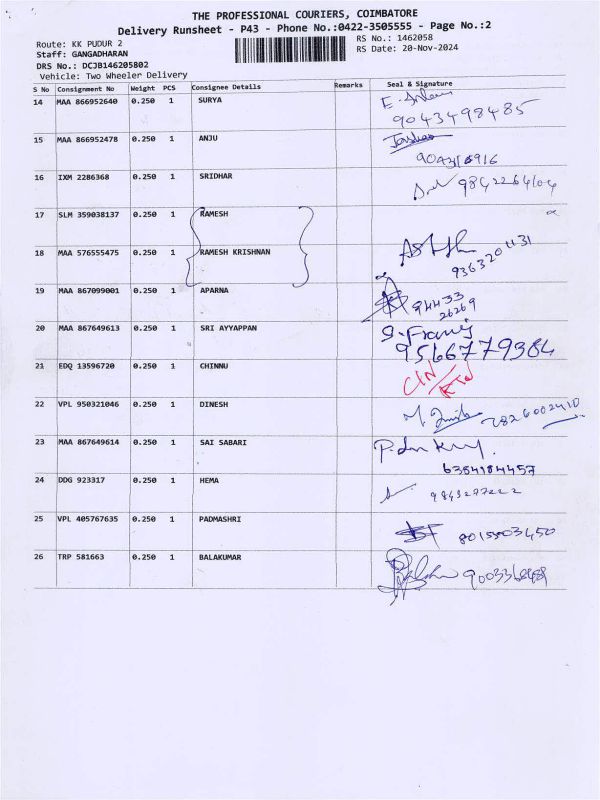 THE PROFESSIONAL COURIERS, COIMBATORE
Delivery Runsheet - P43 - Phone No.:0422-3505555 - Page No.:2
Route: KK PUDUR 2 RS No.: 1462058
Staff: GANGADHARAN RS Date: 20-Nov-2024
DRS No.: DCJB146205802
Vehicle: Two Wheeler Delivery
S No Consignment No Weight PCS Consignee Details Remarks Seal & Signature
14 MAA 866952640 0.250 1 SURYA
9043498485
15 MAA 866952478 0.250 1 ANJU
16 IXM 2286368 0.250 1 SRIDHAR
17 SLM 359038137 0.250 1 RAMESH
18 MAA 576555475 0.250 1 RAMESH KRISHNAN
19 MAA 867099001 0.250 1 APARNA
94433
26269
20 MAA 867649613 0.250 1 SRI AYYAPPAN
9566779384
21 EDQ 13596720 0.250 1 CHINNU
22 VPL 950321046 0.250 1 DINESH
7826002410
23 MAA 867649614 0.250 1 SAI SABARI
6384184457
24 DDG 923317 0.250 1 HEMA
9843277222
25 VPL 405767635 0.250 1 PADMASHRI
26 TRP 581663 0.250 1 BALAKUMAR